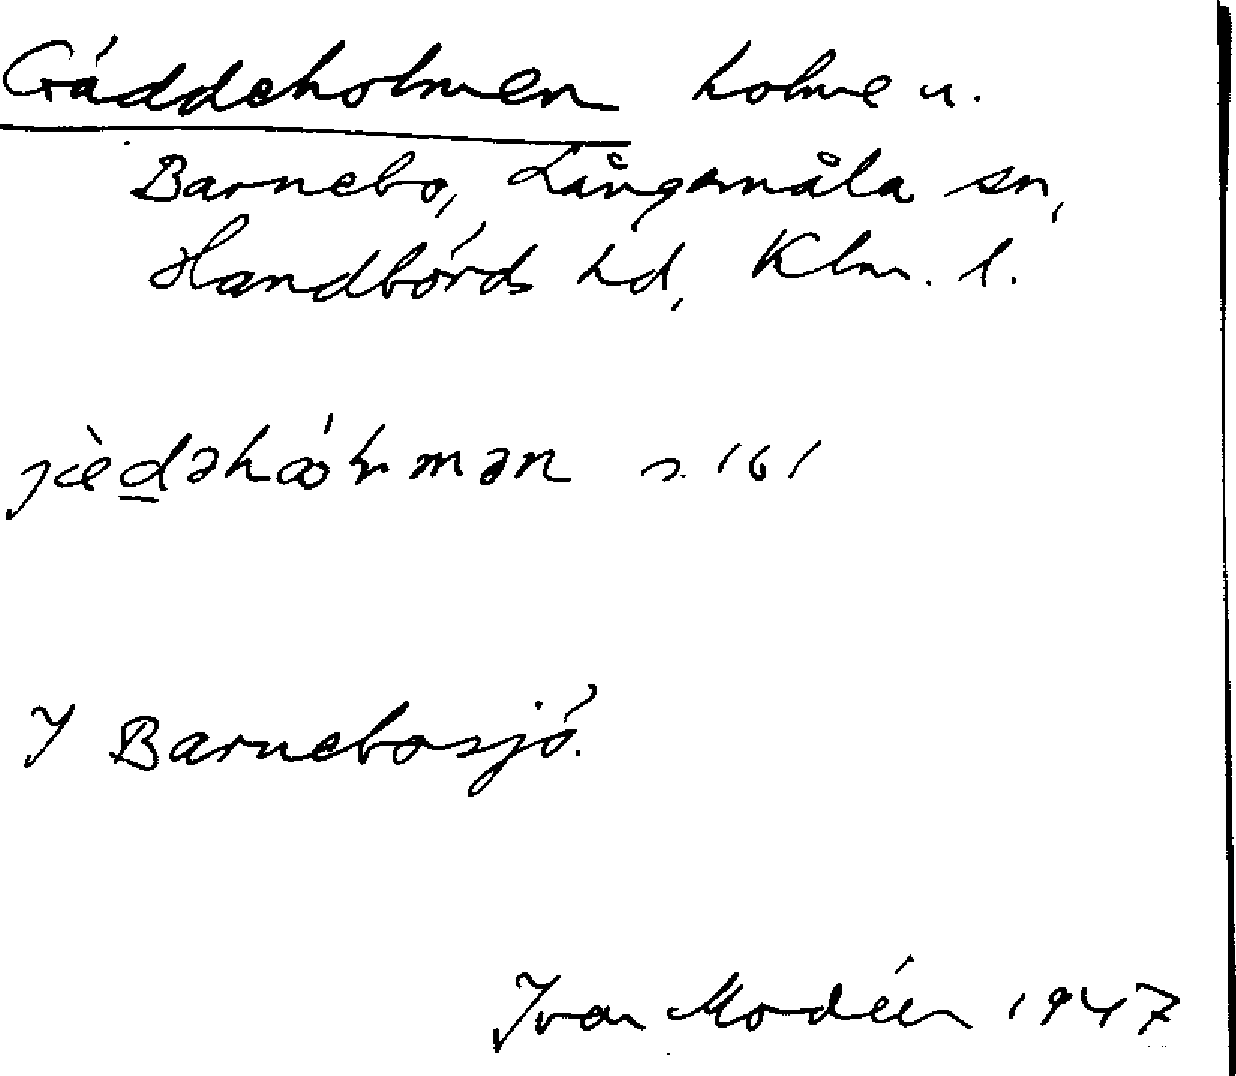 Gäddeholmen holme u.
Barnebo, Långemåla sn,
Handbörds hd, Klm. l.
I Barnebosjö.
Ivar Modéer 1947